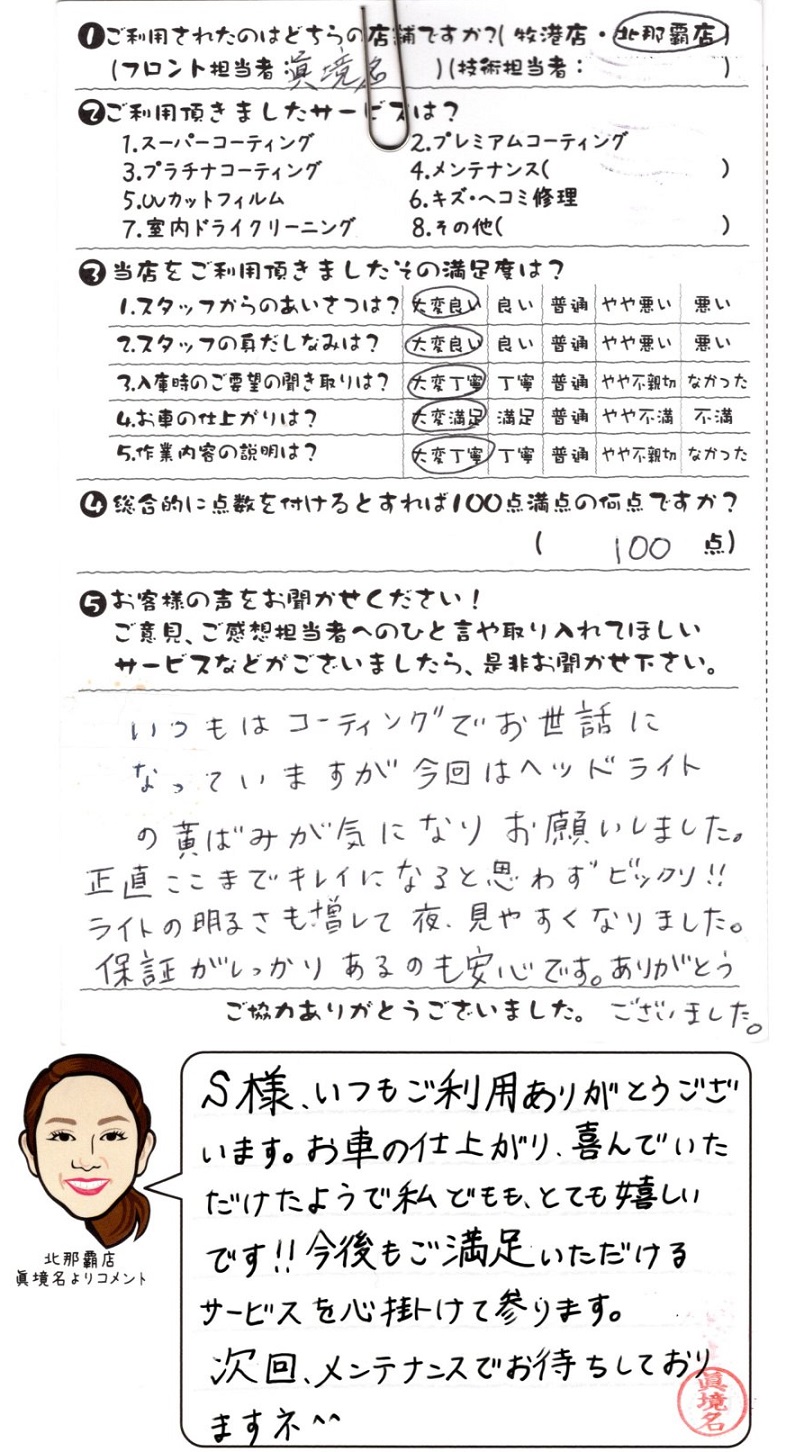 ❶ご利用されたのはどちらの店舗ですか?(牧港店・北那覇店)
(フロント担当者 眞境名 )(技術担当者: )
❷ご利用頂きましたサービスは?
1.スーパーコーティング 2.プレミアムコーティング
3.プラチナコーティング 4.メンテナンス( )
5.UVカットフィルム 6.キズ・ヘコミ修理
7.室内ドライクリーニング 8.その他( )
❸当店をご利用頂きましたその満足度は?
1.スタッフからのあいさつは? 大変良い 良い 普通 やや悪い 悪い
2.スタッフの身だしなみは? 大変良い 良い 普通 やや悪い 悪い
3.入庫時のご要望の聞き取りは? 大変丁寧 丁寧 普通 やや不親切 なかった
4.お車の仕上がりは? 大変満足 満足 普通 やや不満 不満
5.作業内容の説明は? 大変丁寧 丁寧 普通 やや不親切 なかった
❹総合的に点数を付けるとすれば100点満点の何点ですか?
( 100 点)
❺お客様の声をお聞かせください!
ご意見、ご感想担当者へのひと言や取り入れてほしい
サービスなどがございましたら、是非お聞かせ下さい。
いつもはコーティングでお世話に
なっていますが今回はヘッドライト
の黄ばみが気になりお願いしました。
正直ここまでキレイになると思わずビックリ!!
ライトの明るさも増して夜、見やすくなりました。
保証がしっかりあるのも安心です。ありがとう
ございました。
ご協力ありがとうございました。
S様、いつもご利用ありがとうござ
います。お車の仕上がり、喜んでいた
だけたようで私どもも、とても嬉しい
です!!今後もご満足いただける
サービスを心掛けて参ります。
次回、メンテナンスでお待ちしており
ますネ^^
眞境名
北那覇店
眞境名よりコメント